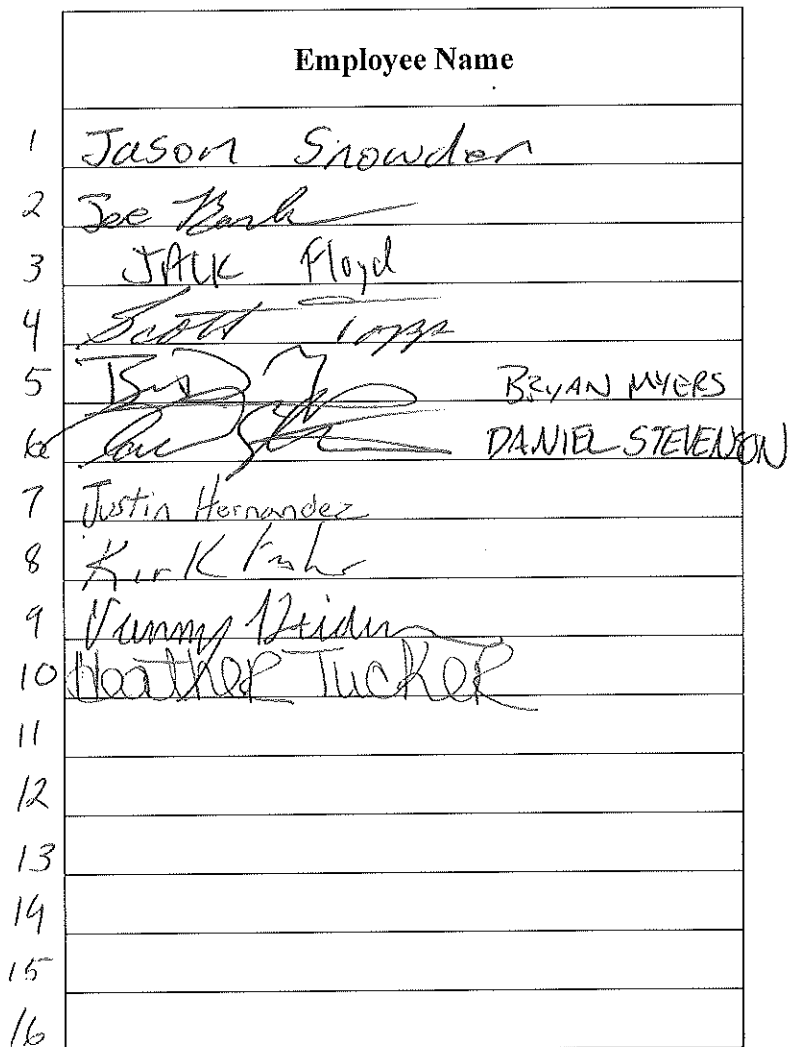 Employee Name
1 Jason Snowden
2 Joe
3 JACK Floyd
4 Scott Topps
5 BRYAN MYERS
6 DANIEL STEVENSON
7 Justin Hernandez
8 Kirk
9
10 Heather Tucker
11
12
13
14
15
16